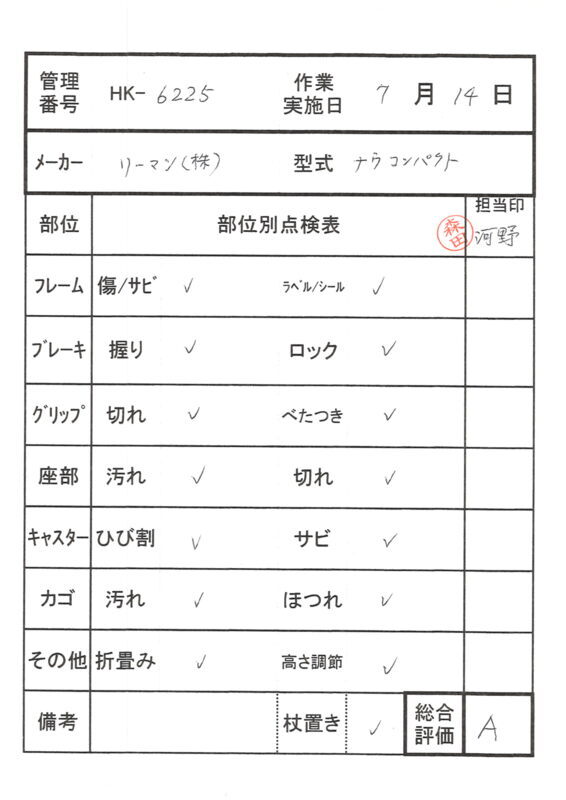 管理番号 HK- 6225 作業実施日 7 月 14 日
メーカー リーマン(株) 型式 ナウコンパクト
部位 部位別点検表 森田 担当印 河野
フレーム 傷/サビ ✓ ラベル/シール ✓
ブレーキ 握り ✓ ロック ✓
グリップ 切れ ✓ べたつき ✓
座部 汚れ ✓ 切れ ✓
キャスター ひび割 ✓ サビ ✓
カゴ 汚れ ✓ ほつれ ✓
その他 折畳み ✓ 高さ調節 ✓
備考 杖置き ✓ 総合評価 A